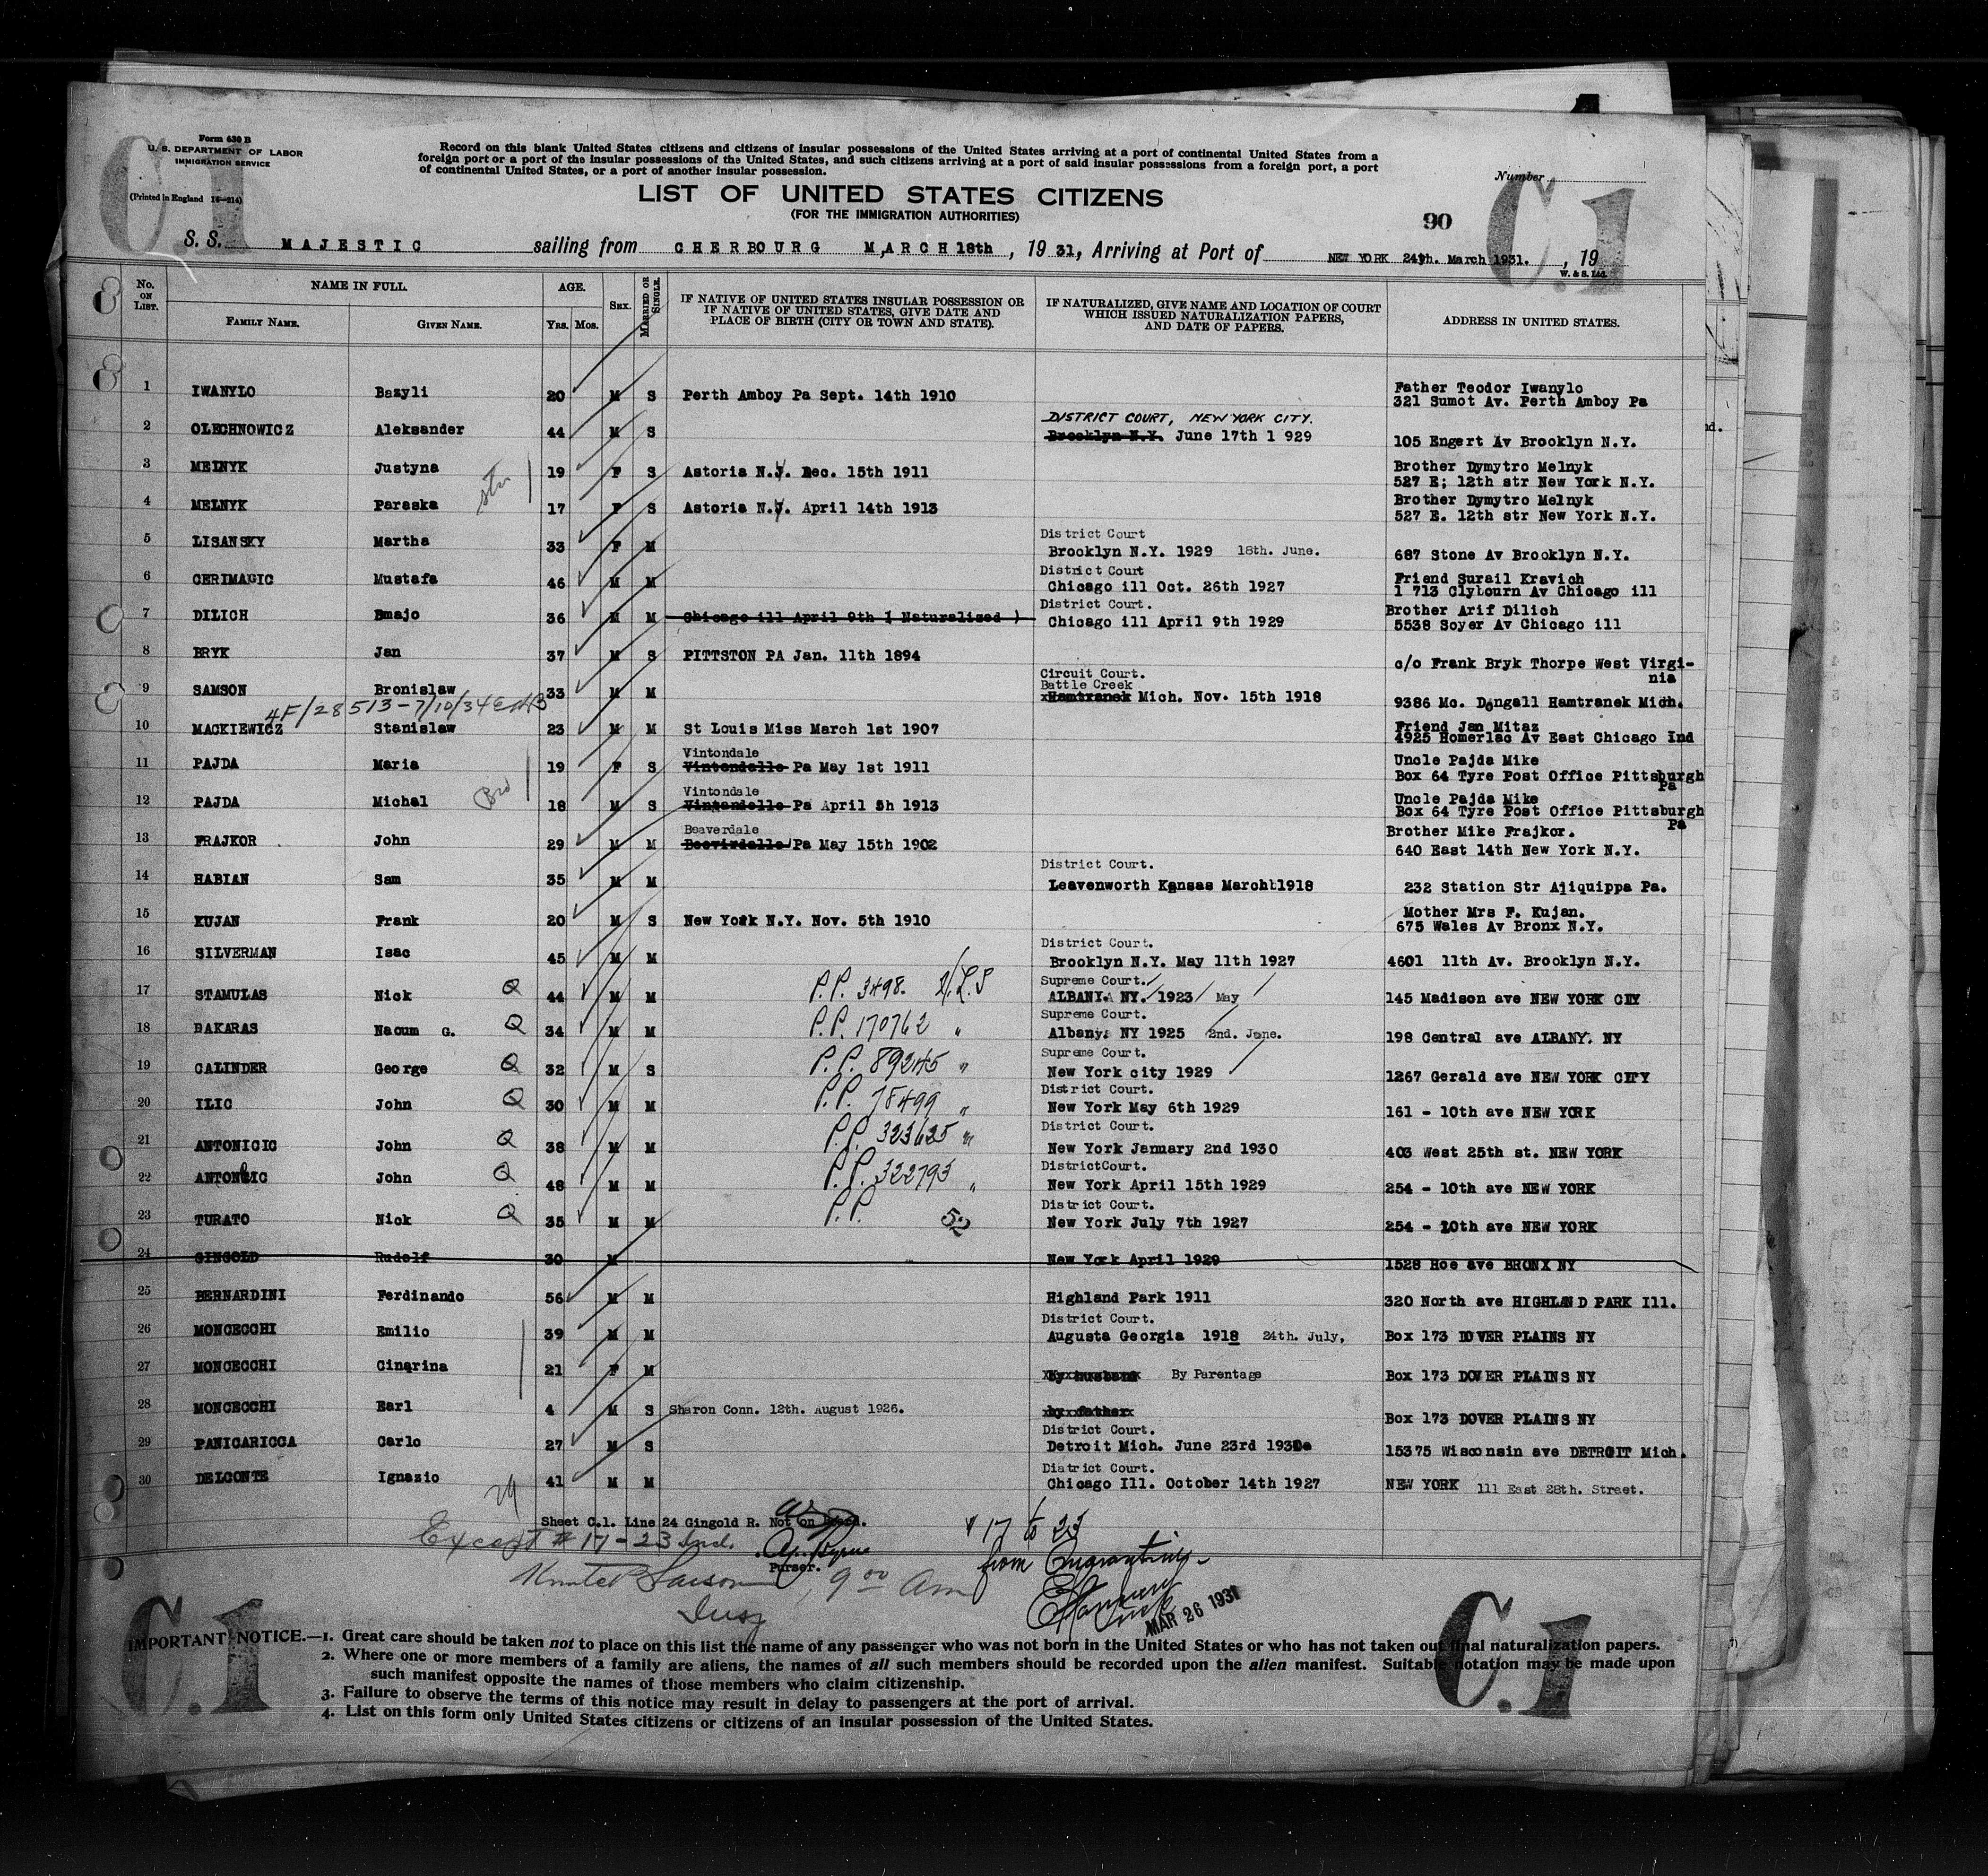 Form 630 B
U. S. DEPARTMENT OF LABOR
IMMIGRATION SERVICE
(Printed in England 16—214)
C.1
C.1
Record on this blank United States citizens and citizens of insular possessions of the United States arriving at a port of continental United States from a
foreign port or a port of the insular possessions of the United States, and such citizens arriving at a port of said insular possessions from a foreign port, a port
of continental United States, or a port of another insular possession.
Number
LIST OF UNITED STATES CITIZENS
(FOR THE IMMIGRATION AUTHORITIES)
90
S. S. MAJESTIC sailing from CHERBOURG MARCH 18th, 1931, Arriving at Port of NEW YORK 24th. March 1931. , 19
W. & S. Ltd.
No. ON LIST. NAME IN FULL. AGE. SEX. MARRIED OR SINGLE. IF NATIVE OF UNITED STATES INSULAR POSSESSION OR IF NATIVE OF UNITED STATES, GIVE DATE AND PLACE OF BIRTH (CITY OR TOWN AND STATE). IF NATURALIZED, GIVE NAME AND LOCATION OF COURT WHICH ISSUED NATURALIZATION PAPERS, AND DATE OF PAPERS. ADDRESS IN UNITED STATES.
FAMILY NAME. GIVEN NAME. YRS. MOS.
1 IWANYLO Bazyli 20 M S Perth Amboy Pa Sept. 14th 1910 Father Teodor Iwanylo
321 Sumot Av. Perth Amboy Pa
DISTRICT COURT, NEW YORK CITY.
2 OLECHNOWICZ Aleksander 44 M S Brooklyn N.Y. June 17th 1 929 105 Engert Av Brooklyn N.Y.
3 MELNYK Justyna 19 F S Astoria N.Y. Dec. 15th 1911 Brother Dymytro Melnyk
527 E; 12th str New York N.Y.
4 MELNYK Paraska 17 F S Astoria N.Y. April 14th 1913 Brother Dymytro Melnyk
527 E. 12th str New York N.Y.
District Court
5 LISANSKY Martha 33 F M Brooklyn N.Y. 1929 18th. June. 687 Stone Av Brooklyn N.Y.
District Court
6 CERIMAGIC Mustafa 46 M M Chicago ill Oct. 26th 1927 Friend Surail Kravich
1 713 Clybourn Av Chicago ill
District Court.
7 DILICH Bmajo 36 M M Chicago ill April 9th ( Naturalized ) Chicago ill April 9th 1929 Brother Arif Dilich
5538 Soyer Av Chicago ill
8 BRYK Jan 37 M S PITTSTON PA Jan. 11th 1894 c/o Frank Bryk Thorpe West Virgi-
nia
Circuit Court.
Battle Creek
9 SAMSON Bronislaw 33 M M Hamtranek Mich. Nov. 15th 1918 9386 Mc. Dongall Hamtranek Mich.
4F/28513-7/10/34
10 MACKIEWICZ Stanislaw 23 M M St Louis Miss March 1st 1907 Friend Jan Mitaz
4925 Homerlac Av East Chicago Ind
Vintondale
11 PAJDA Maria 19 F S Vintondelle Pa May 1st 1911 Uncle Pajda Mike
Box 64 Tyre Post Office Pittsburgh
Pa
Vintondale
12 PAJDA Michal Bro 18 M S Vintondelle Pa April 5h 1913 Uncle Pajda Mike
Box 64 Tyre Post Office Pittsburgh
Pa
Beaverdale
13 FRAJKOR John 29 M M Beevirdelle Pa May 15th 1902 Brother Mike Frajkor.
640 East 14th New York N.Y.
District Court.
14 HABIAN Sam 35 M M Leavenworth Kansas March 1918 232 Station Str Ajiquippa Pa.
15 KUJAN Frank 20 M S New York N.Y. Nov. 5th 1910 Mother Mrs F. Kujan.
675 Wales Av Bronx N.Y.
District Court.
16 SILVERMAN Isac 45 M M Brooklyn N.Y. May 11th 1927 4601 11th Av. Brooklyn N.Y.
Supreme Court.
17 STAMULAS Nick Q 44 M M P.P. 3498. ALBANY. NY. 1923 May 145 Madison ave NEW YORK CITY
Supreme Court.
18 BAKARAS Naoum G. Q 34 M M P.P. 170762 " Albany. NY 1925 2nd. June. 198 Central ave ALBANY. NY
Supreme Court.
19 CALINDER George Q 32 M S P.P. 89245 " New York city 1929 1267 Gerald ave NEW YORK CITY
District Court.
20 ILIC John Q 30 M M P.P. 78499 " New York May 6th 1929 161 - 10th ave NEW YORK
District Court.
21 ANTONICIC John Q 38 M M P.P. 323625 " New York January 2nd 1930 403 West 25th st. NEW YORK
DistrictCourt.
22 ANTONCIC John Q 48 M M P.P. 322793 " New York April 15th 1929 254 - 10th ave NEW YORK
District Court.
23 TURATO Nick Q 35 M M P.P. 52 New York July 7th 1927 254 - 10th ave NEW YORK
24 GINGOLD Rudolf 30 M New York April 1929 1528 Hoe ave BRONX NY
25 BERNARDINI Ferdinando 56 M M Highland Park 1911 320 North ave HIGHLAND PARK Ill.
District Court.
26 MONCECCHI Emilio 39 M M Augusta Georgia 1918 24th. July, Box 173 DOVER PLAINS NY
27 MONCECCHI Cinarina 21 F M By husband By Parentage Box 173 DOVER PLAINS NY
28 MONCECCHI Earl 4 M S Sharon Conn. 12th. August 1926. by father Box 173 DOVER PLAINS NY
District Court.
29 PANICARICCA Carlo 27 M S Detroit Mich. June 23rd 1930 15375 Wisconsin ave DETROIT Mich.
District Court.
30 DELCONTE Ignazio 41 M M Chicago Ill. October 14th 1927 NEW YORK 111 East 28th. Street.
29
Sheet C.1. Line 24 Gingold R. Not on Board.
Except # 17-23 Incl.
Purser.
9 00 Am
Insp
17 to 23
from Quarantine
MAR 26 1931
C.1
C.1
IMPORTANT NOTICE.—1. Great care should be taken not to place on this list the name of any passenger who was not born in the United States or who has not taken out final naturalization papers.
2. Where one or more members of a family are aliens, the names of all such members should be recorded upon the alien manifest. Suitable notation may be made upon
such manifest opposite the names of those members who claim citizenship.
3. Failure to observe the terms of this notice may result in delay to passengers at the port of arrival.
4. List on this form only United States citizens or citizens of an insular possession of the United States.